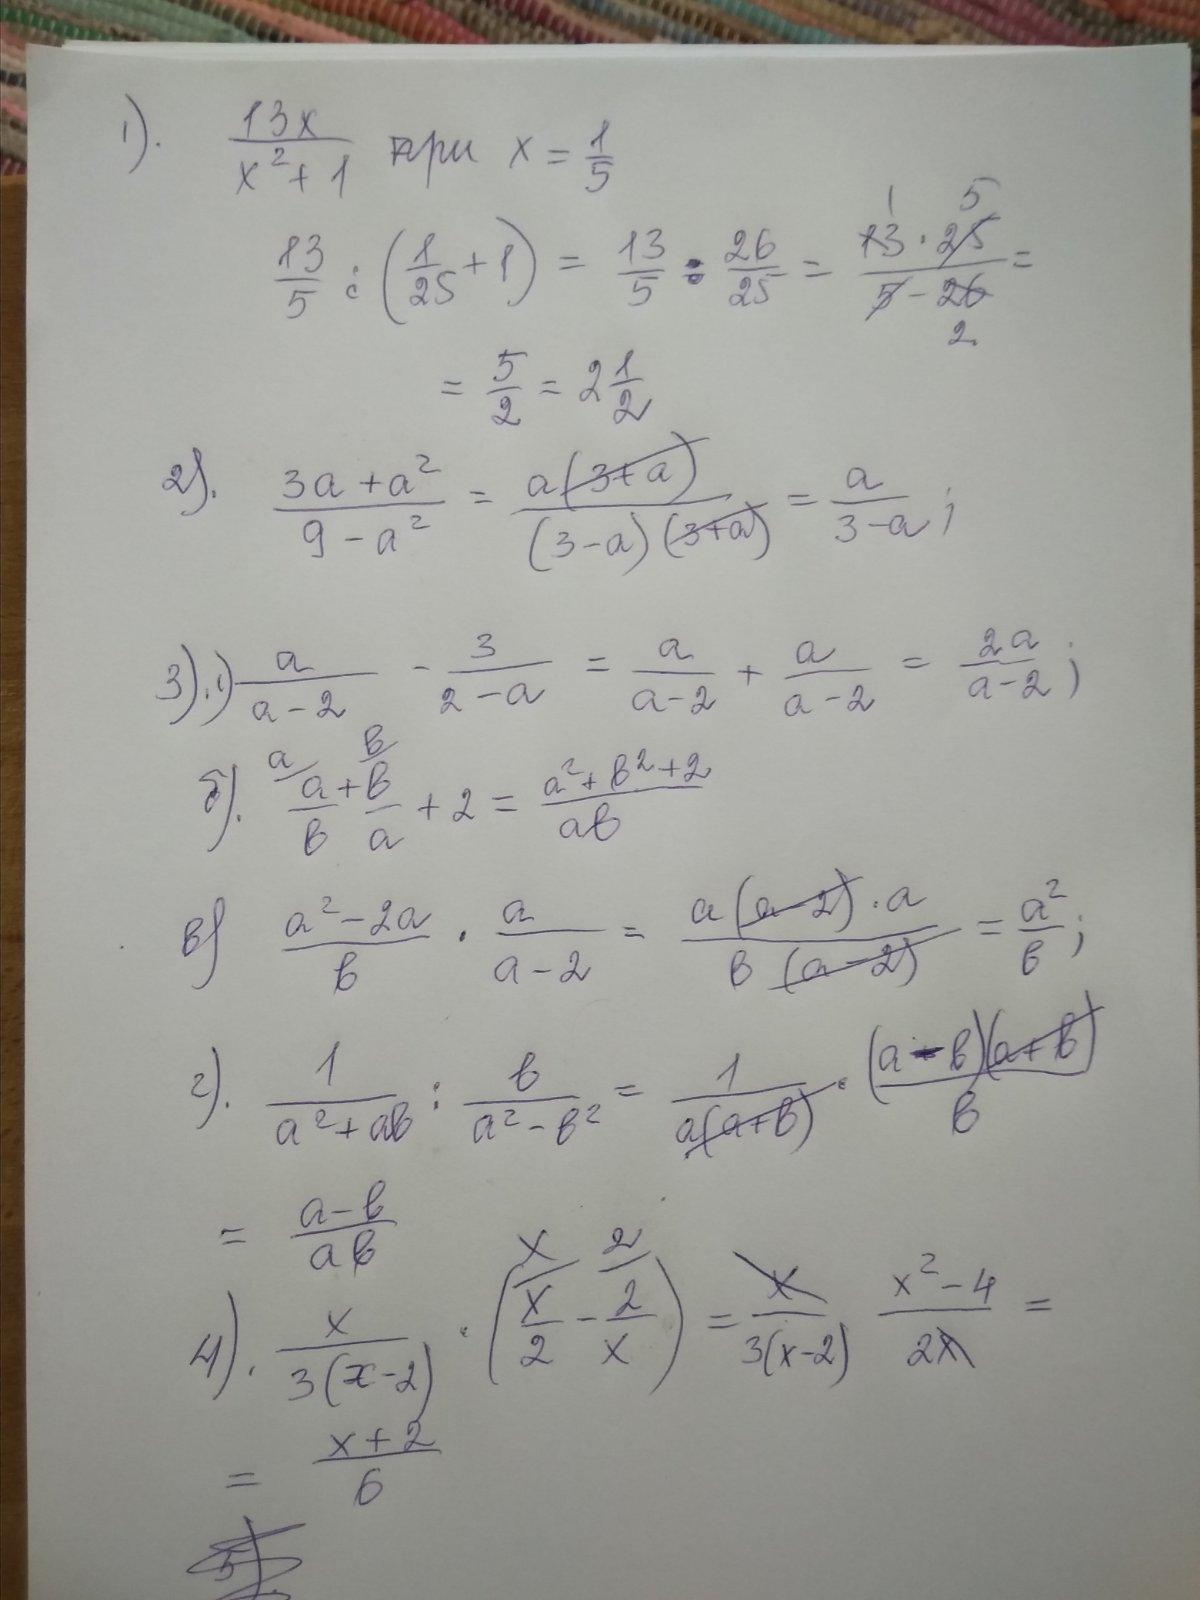 1). 13x/(x²+1) при x = 1/5
13/5 : (1/25 + 1) = 13/5 : 26/25 = (13 · 25)/(5 - 26) = 1 5 2
= 5/2 = 2 1/2
2). (3a + a²)/(9 - a²) = a(3+a)/((3-a)(3+a)) = a/(3-a);
3).1) a/(a-2) - 3/(2-a) = a/(a-2) + a/(a-2) = 2a/(a-2);
б). a/ a/в + в/ в/a + 2 = (a² + в² + 2)/(aв)
в) (a² - 2a)/в · a/(a-2) = (a(a-2) · a)/(в(a-2)) = a²/в;
г). 1/(a² + aв) : в/(a² - в²) = 1/(a(a+в)) · ((a-в)(a+в))/в
= (a-в)/(aв)
4). x/(3(x-2)) · (x/ x/2 - 2/ 2/x) = x/(3(x-2)) (x² - 4)/(2x) =
= (x+2)/6
5).